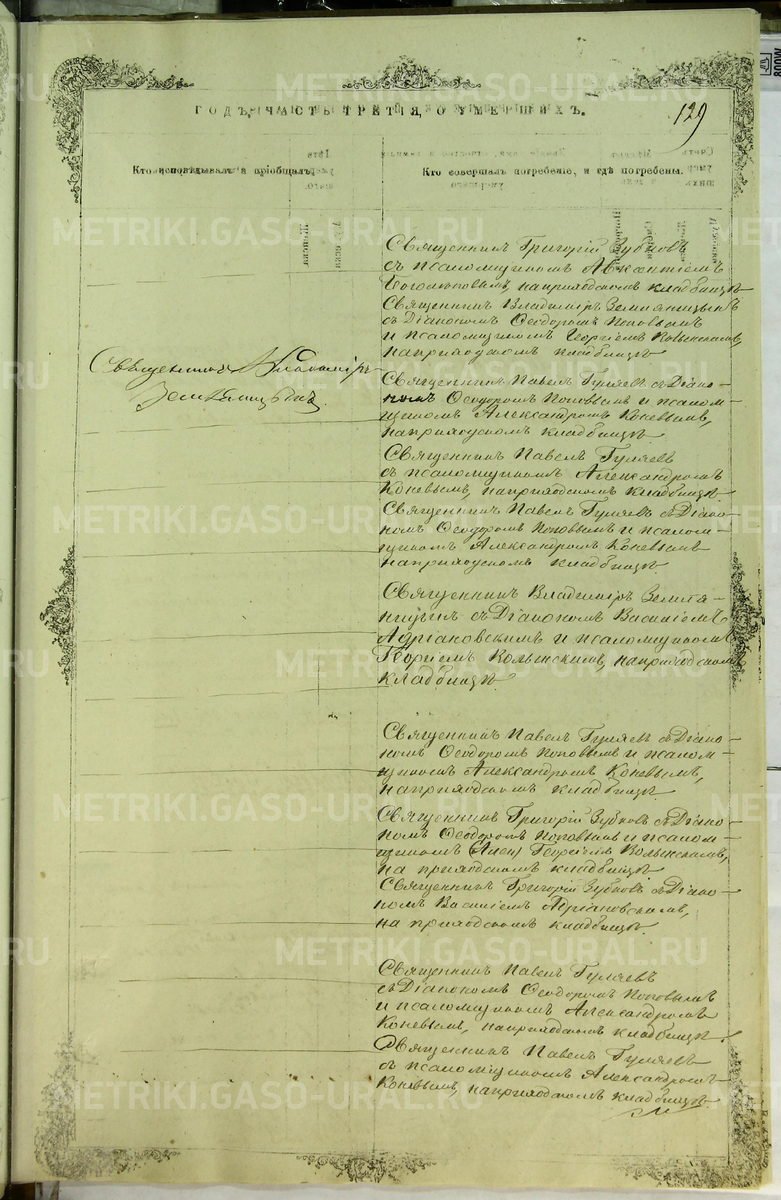 129
ГОДЪ, ЧАСТЬ ТРЕТІЯ, О УМЕРШИХЪ.
Кто исповѣдывалъ и пріобщалъ.
Кто совершалъ погребеніе, и гдѣ погребены.
Священникъ Григорій Зубковъ
съ псаломщикомъ Авксентіемъ
на приходскомъ кладбищѣ
Священникъ Владиміръ Земляницынъ
съ Діакономъ Ѳеодоромъ Поповымъ
и псаломщикомъ Георгіемъ Колынскимъ,
на приходскомъ кладбищѣ.
Священникъ Владиміръ
Земляницынъ.
Священникъ Павелъ Гуляевъ съ Діако-
номъ Ѳеодоромъ Поповымъ и псалом-
щикомъ Александромъ Коневымъ,
на приходскомъ кладбищѣ.
Священникъ Павелъ Гуляевъ
съ псаломщикомъ Александромъ
Коневымъ, на приходскомъ кладбищѣ.
Священникъ Павелъ Гуляевъ съ Діако-
номъ Ѳеодоромъ Поповымъ и псалом-
щикомъ Александромъ Коневымъ
на приходскомъ кладбищѣ
Священникъ Владиміръ Земля-
ницынъ съ Діакономъ Василіемъ
Адріановскимъ и псаломщикомъ
Георгіемъ Колынскимъ, на приходскомъ
кладбищѣ.
Священникъ Павелъ Гуляевъ съ Діако-
номъ Ѳеодоромъ Поповымъ и псалом-
щикомъ Александромъ Коневымъ,
на приходскомъ кладбищѣ.
Священникъ Григорій Зубковъ съ Діако-
номъ Ѳеодоромъ Поповымъ и псалом-
щикомъ (Алек) Георгіемъ Колынскимъ,
на приходскомъ кладбищѣ
Священникъ Григорій Зубковъ съ Діако-
номъ Василіемъ Адріановскимъ,
на приходскомъ кладбищѣ.
Священникъ Павелъ Гуляевъ
съ Діакономъ Ѳеодоромъ Поповымъ
и псаломщикомъ Александромъ
Коневымъ, на приходскомъ кладбищѣ.
Священникъ Павелъ Гуляевъ
съ псаломщикомъ Александромъ
Коневымъ, на приходскомъ кладбищѣ.
METRIKI.GASO-URAL.RU
800W